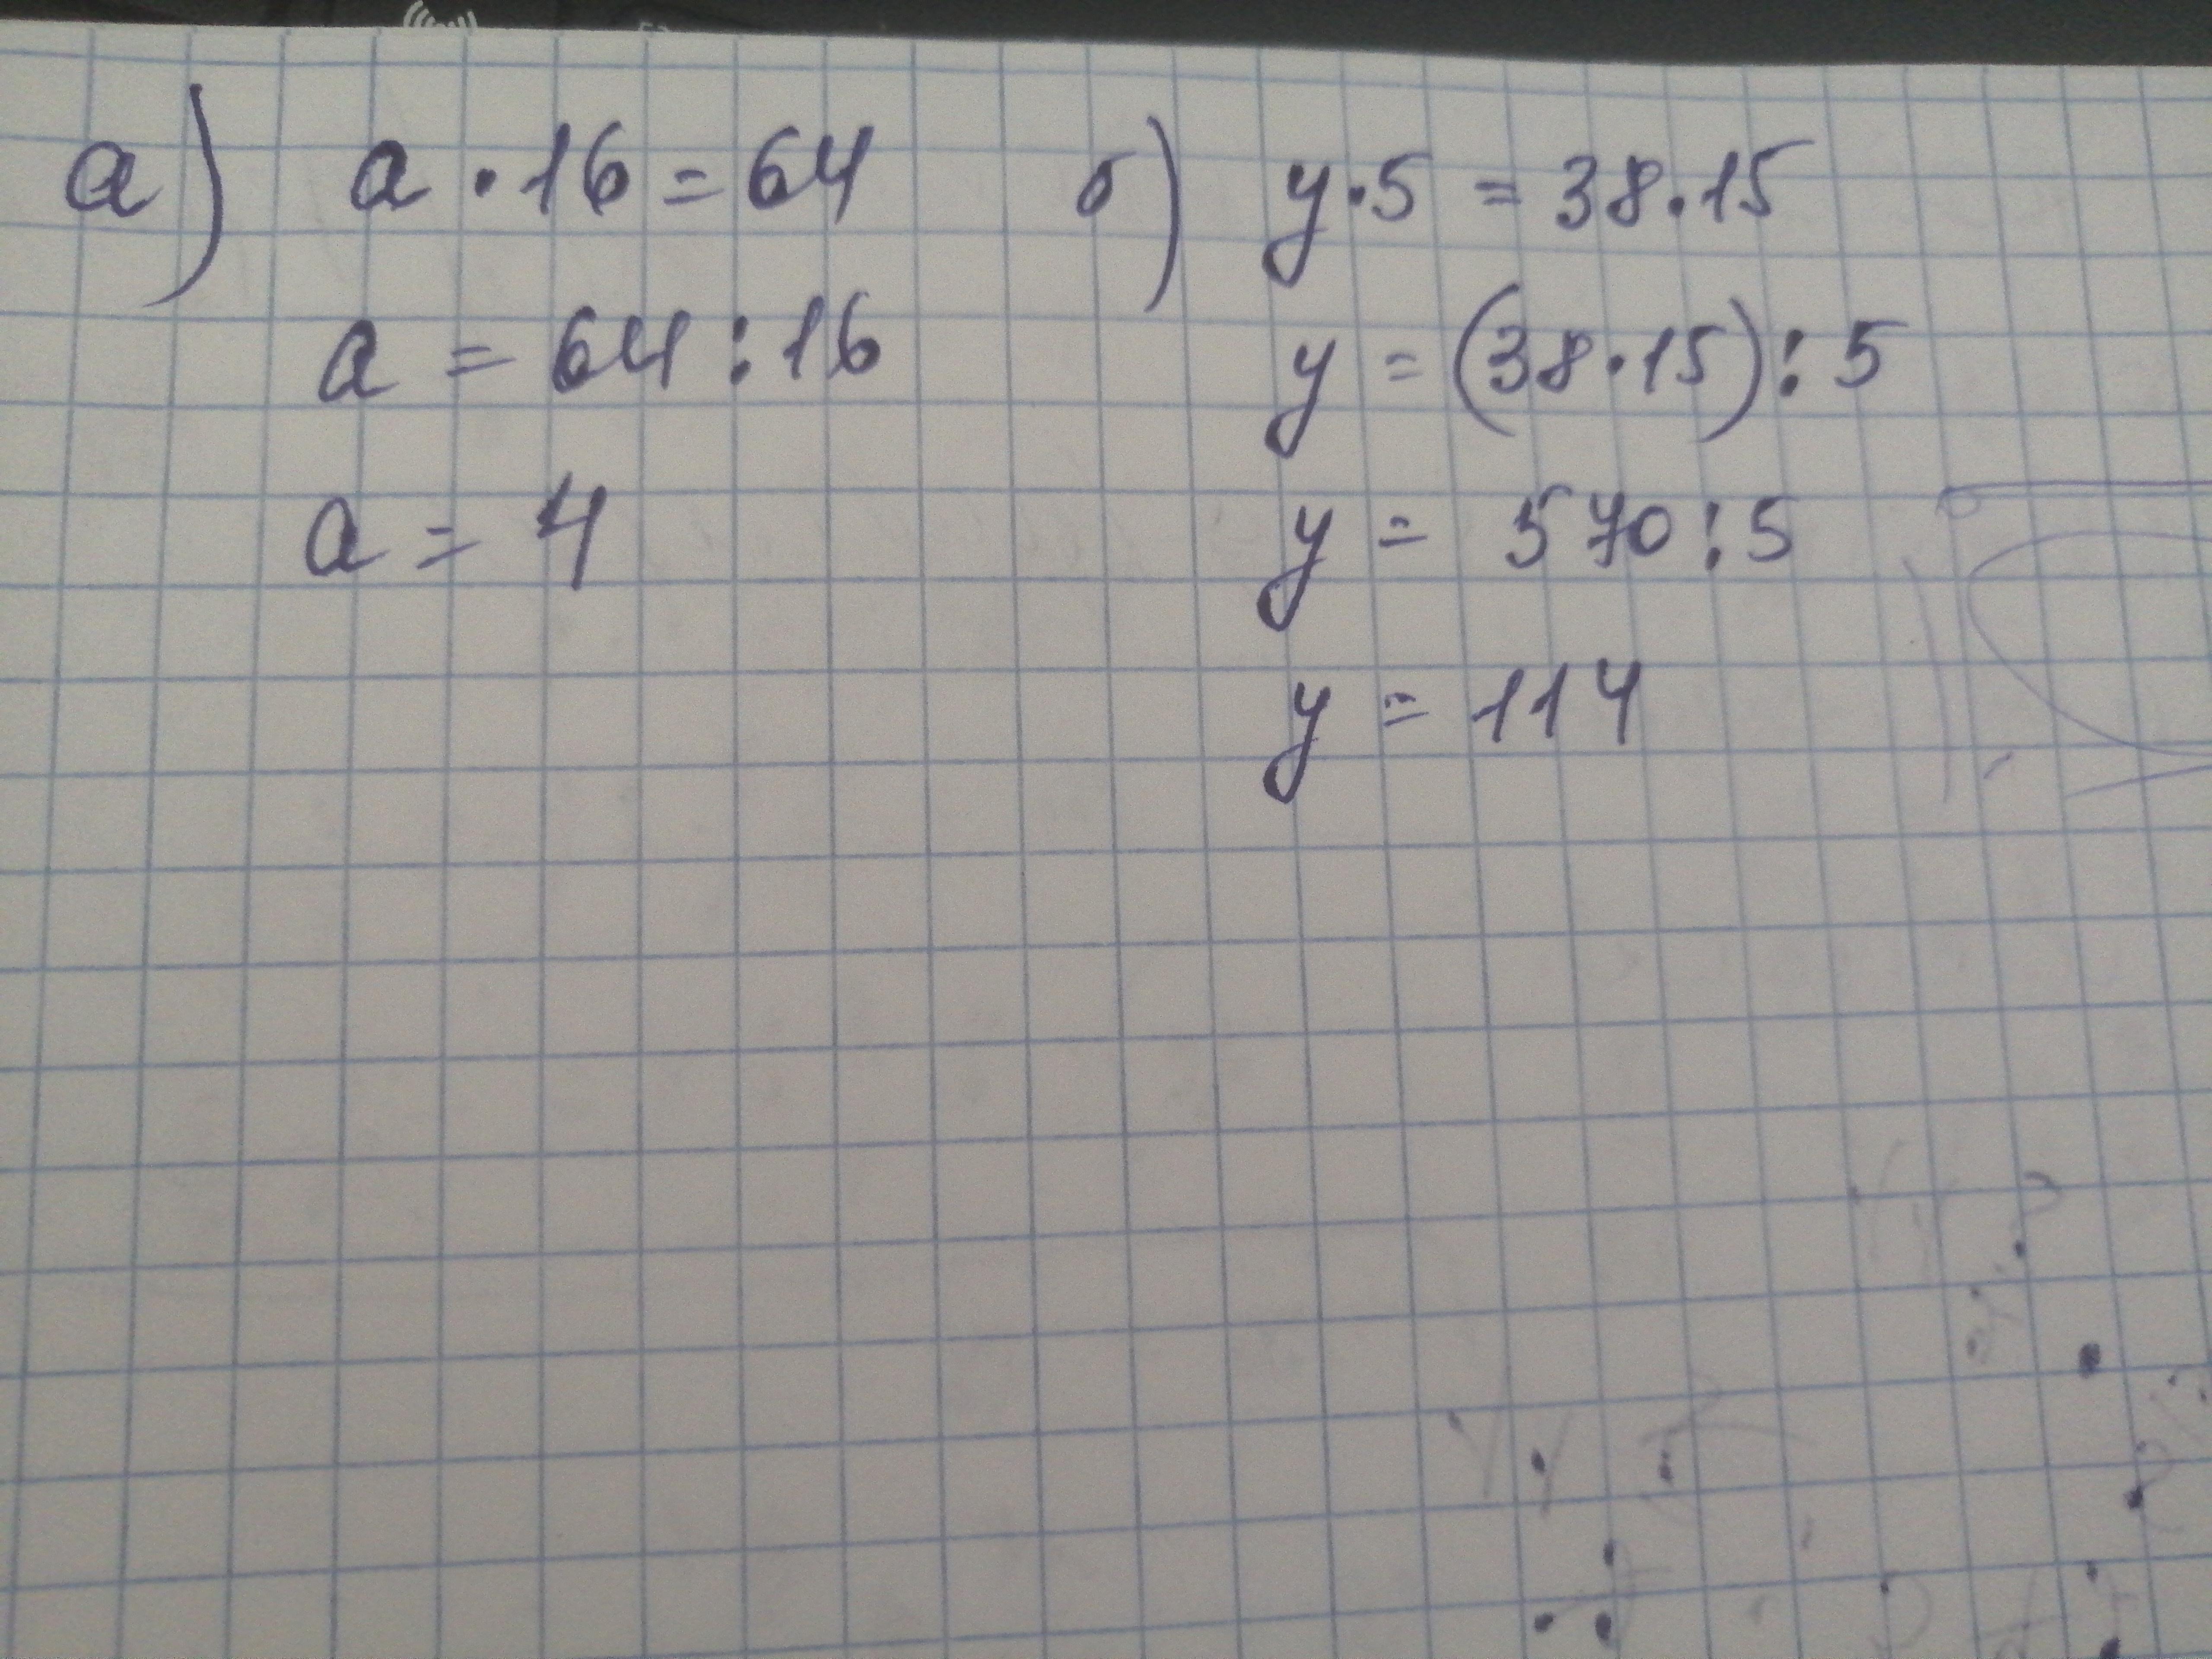 а) a · 16 = 64
a = 64 : 16
a = 4
б) y · 5 = 38 · 15
y = (38 · 15) : 5
y = 570 : 5
y = 114